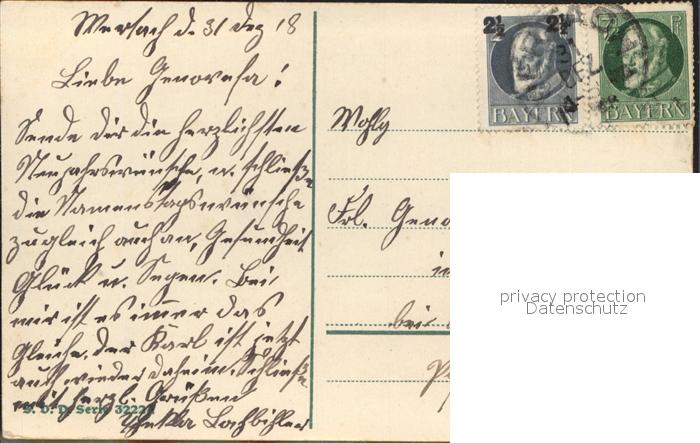 Mersach d. 31 Dez 18
Liebe Genovefa!
Sende dir die herzlichsten
Neujahrswünsche, u. schließe
die Namenstagswünsche
zugleich auch an, Gesundheit
Glück u. Segen. Bei
mir ist es immer das
Gleiche, der Karl ist jetzt
auch wieder daheim. Schließe
mit herzl. Grüßen
Lachbihler
S. V. D. Serie 3222
2½ 2½
BAYERN
BAYERN
Wohlg
Frl. Geno
in
bei
privacy protection
Datenschutz